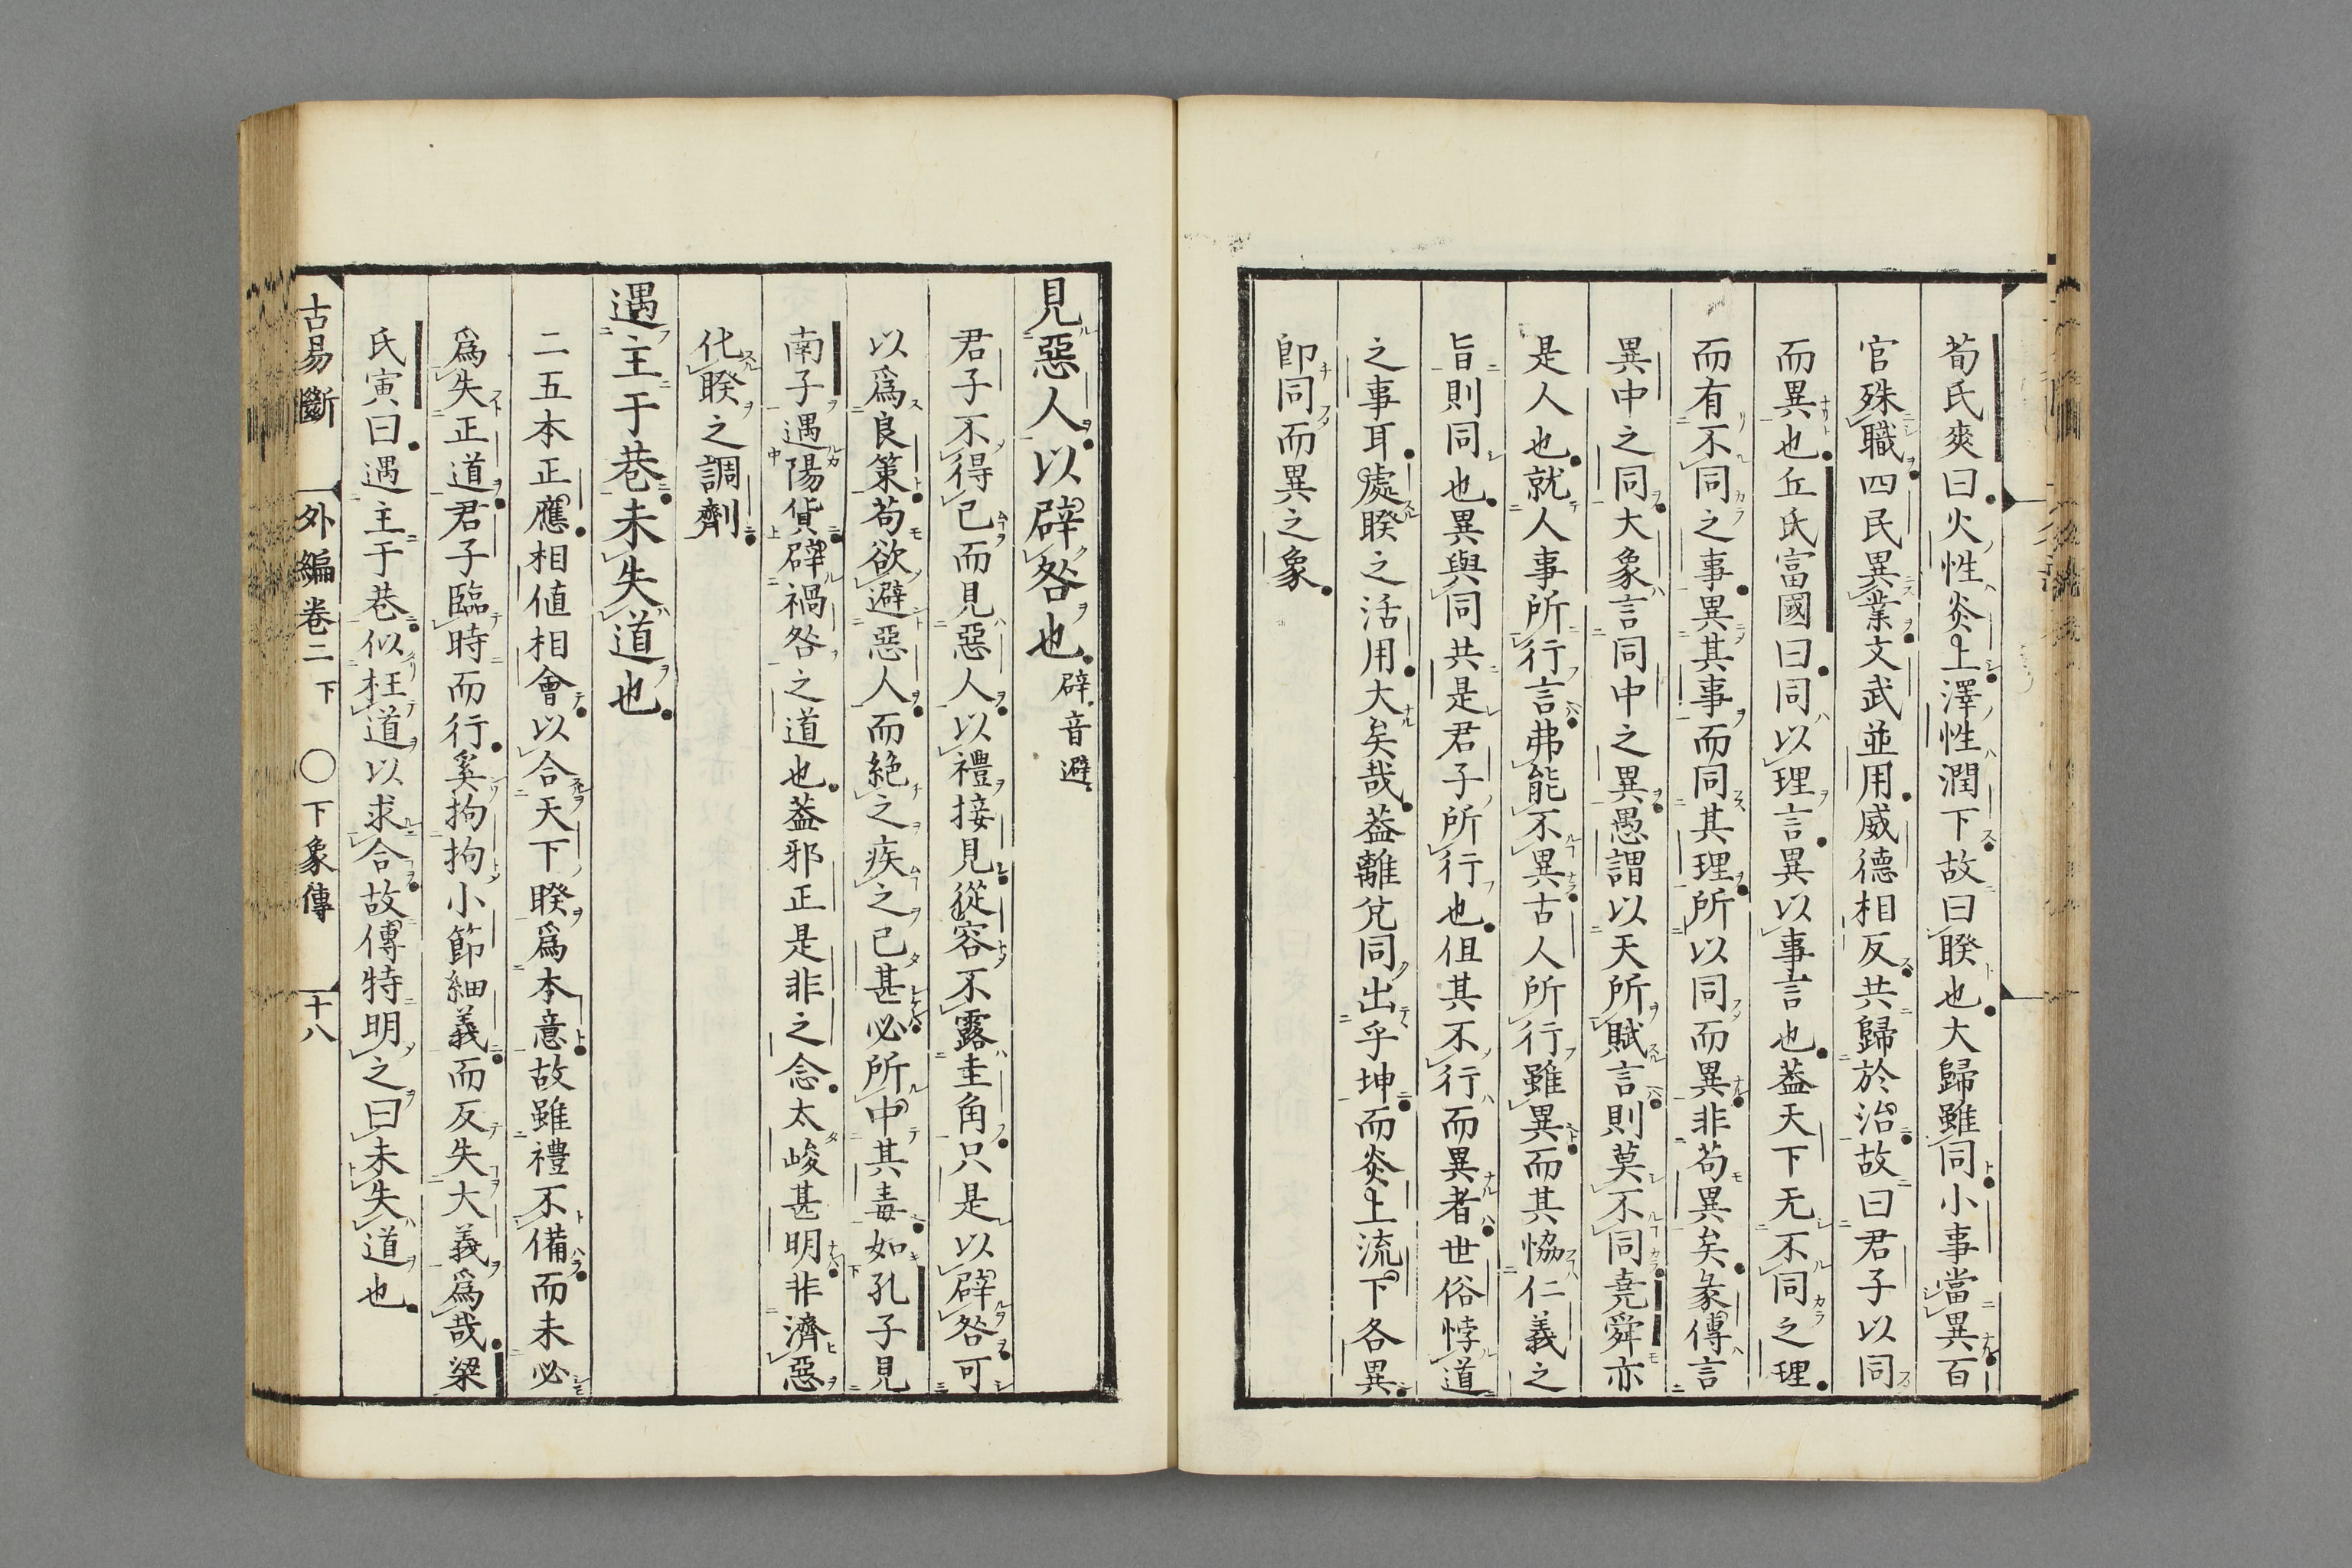 荀氏爽曰火性炎上澤性潤下故曰睽也大歸雖同小事當異百
官殊職四民異業文武並用威德相反共歸於治故曰君子以同
而異也丘氏富國曰同以理言異以事言也葢天下无不同之理
而有不同之事異其事而同其理所以同而異非苟異矣彖傳言
異中之同大象言同中之異愚謂以天所賦言則莫不同堯舜亦
是人也就人事所行言弗能不異古人所行雖異而其恊仁義之
旨則同也異與同共是君子所行也但其不行而異者世俗悖道
之事耳處睽之活用大矣哉葢離兊同出乎坤而炎上流下各異
卽同而異之象
見惡人以辟咎也 辟音避
君子不得已而見惡人以禮接見從容不露圭角只是以辟咎可
以爲良策苟欲避惡人而絶之疾之已甚必所中其毒如孔子見
南子遇陽貨辟禍咎之道也葢邪正是非之念太峻甚明非濟惡
化睽之調劑
遇主于巷未失道也
二五本正應相値相會以合天下睽爲本意故雖禮不備而未必
爲失正道君子臨時而行奚拘拘小節細義而反失大義爲哉梁
氏寅曰遇主于巷似枉道以求合故傳特明之曰未失道也
古易斷 外編卷二下 〇下象傳 十八